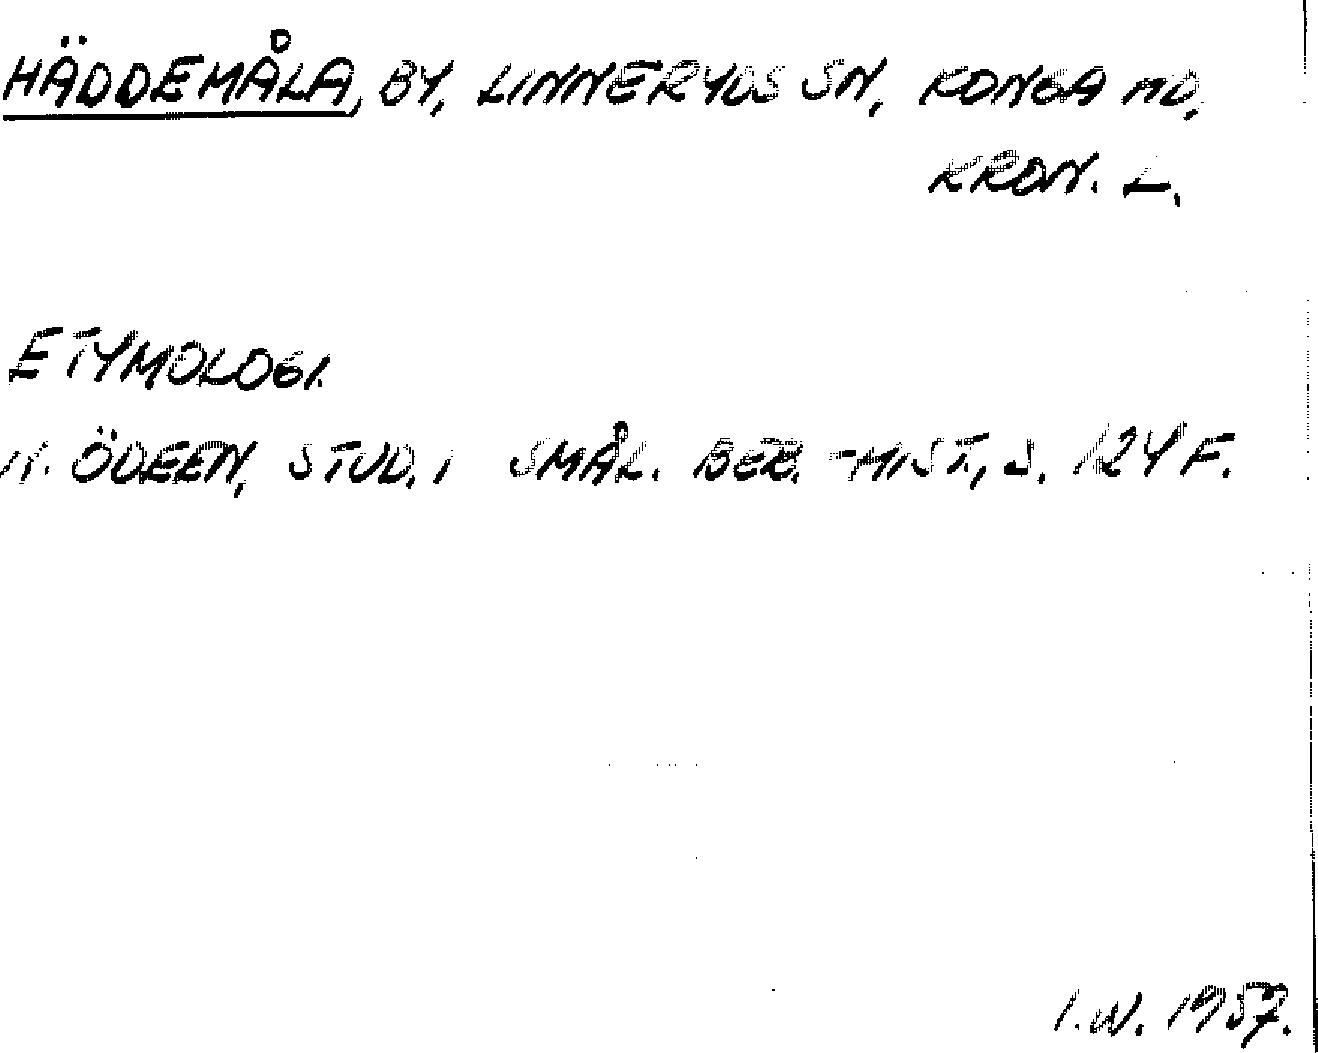 HÄDDEMÅLA, BY, LINNERYDS SN, KONGA HD,
KRON. L.
ETYMOLOGI.
N. ÖDEEN, STUD. I SMÅL. BEB.-HIST., S. 124 F.
I.W. 1957.